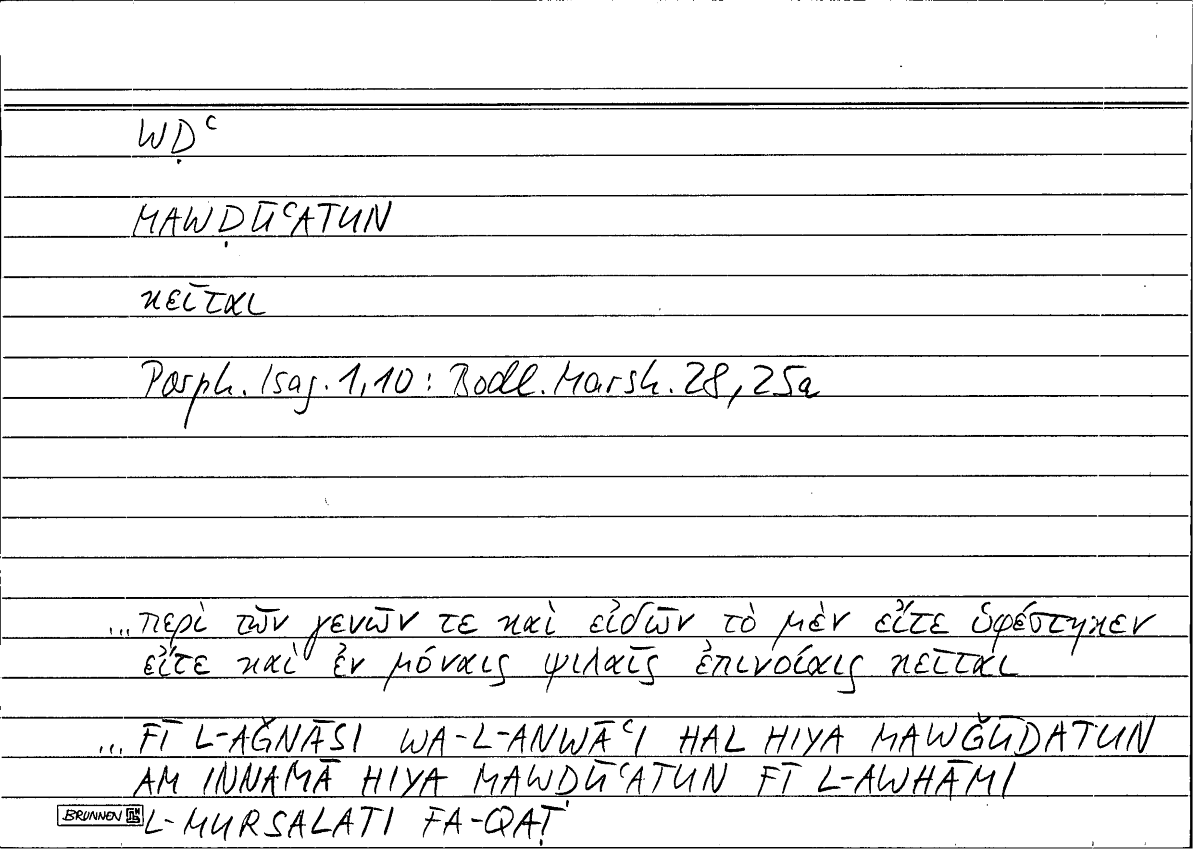 WḌʿ
MAWḌŪʿATUN
κεῖται
Porph. Isag. 1,10 : Bodl. Marsh. 28, 25a
... περὶ τῶν γενῶν τε καὶ εἰδῶν τὸ μὲν εἴτε ὑφέστηκεν
εἴτε καὶ ἐν μόναις ψιλαῖς ἐπινοίαις κεῖται
... FĪ L-AǦNĀSI WA-L-ANWĀʿI HAL HIYA MAWǦŪDATUN
AM INNAMĀ HIYA MAWDŪʿATUN FĪ L-AWHĀMI
BRUNNEN L-MURSALATI FA-QAṬ